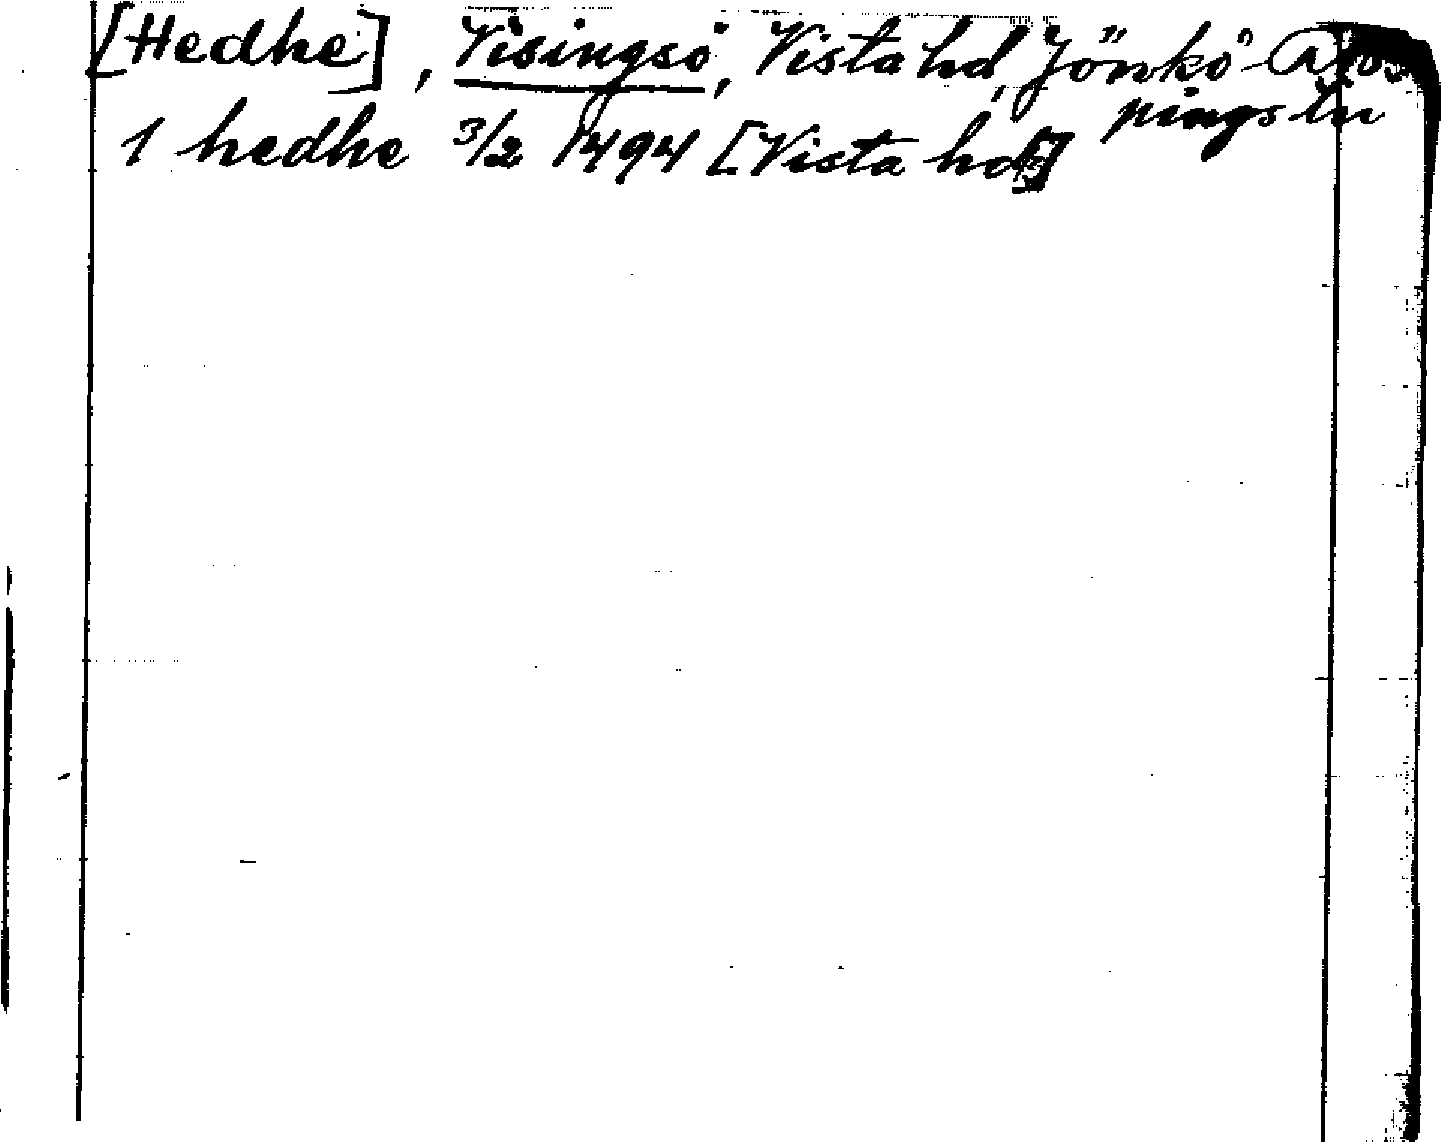 [Hedhe], Visingsö, Vista hd, Jönkö-
pings län
1 hedhe 3/2 1494 [Vista hd]